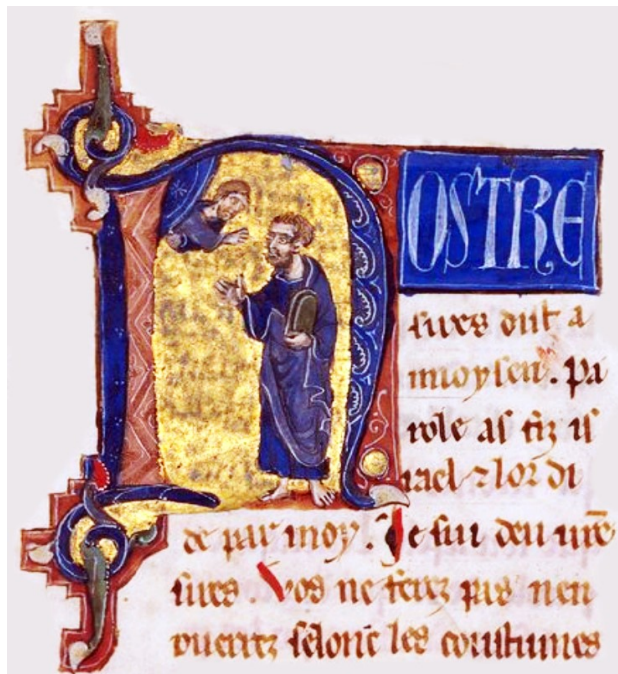 NOSTRE
sires dist a
moysen. Pa
role as fiz is
rael ⁊ lor di
de par moy. Je sui deu vr̄e
sires. Vos ne ferez pas nen
ouerrez selonc les coustumes